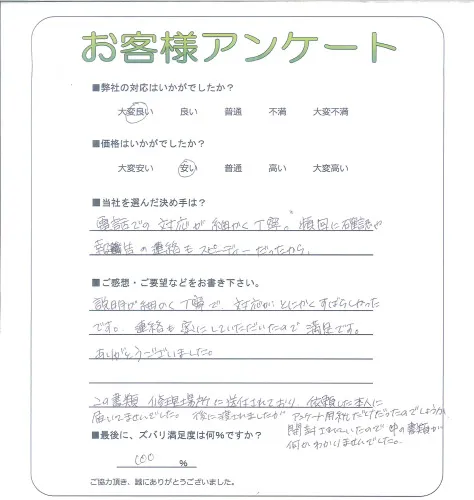 お客様アンケート
■弊社の対応はいかがでしたか？
大変良い 良い 普通 不満 大変不満
■価格はいかがでしたか？
大変安い 安い 普通 高い 大変高い
■当社を選んだ決め手は？
電話での対応が細かく丁寧。頻回に確認や
報告の連絡もスピーディーだったから。
■ご感想・ご要望などをお書き下さい。
説明が細かく丁寧で、対応がとにかくすばらしかった
です。連絡も密にしていただいたので満足です。
ありがとうございました。
この書類、修理場所に送付されており、依頼した本人に
届いてませんでした。後に渡されましたが
アンケート用紙だけだったのでしょうか
開封されていたので中の書類が
何かわかりませんでした。
■最後に、ズバリ満足度は何％ですか？
100 ％
ご協力頂き、誠にありがとうございました。